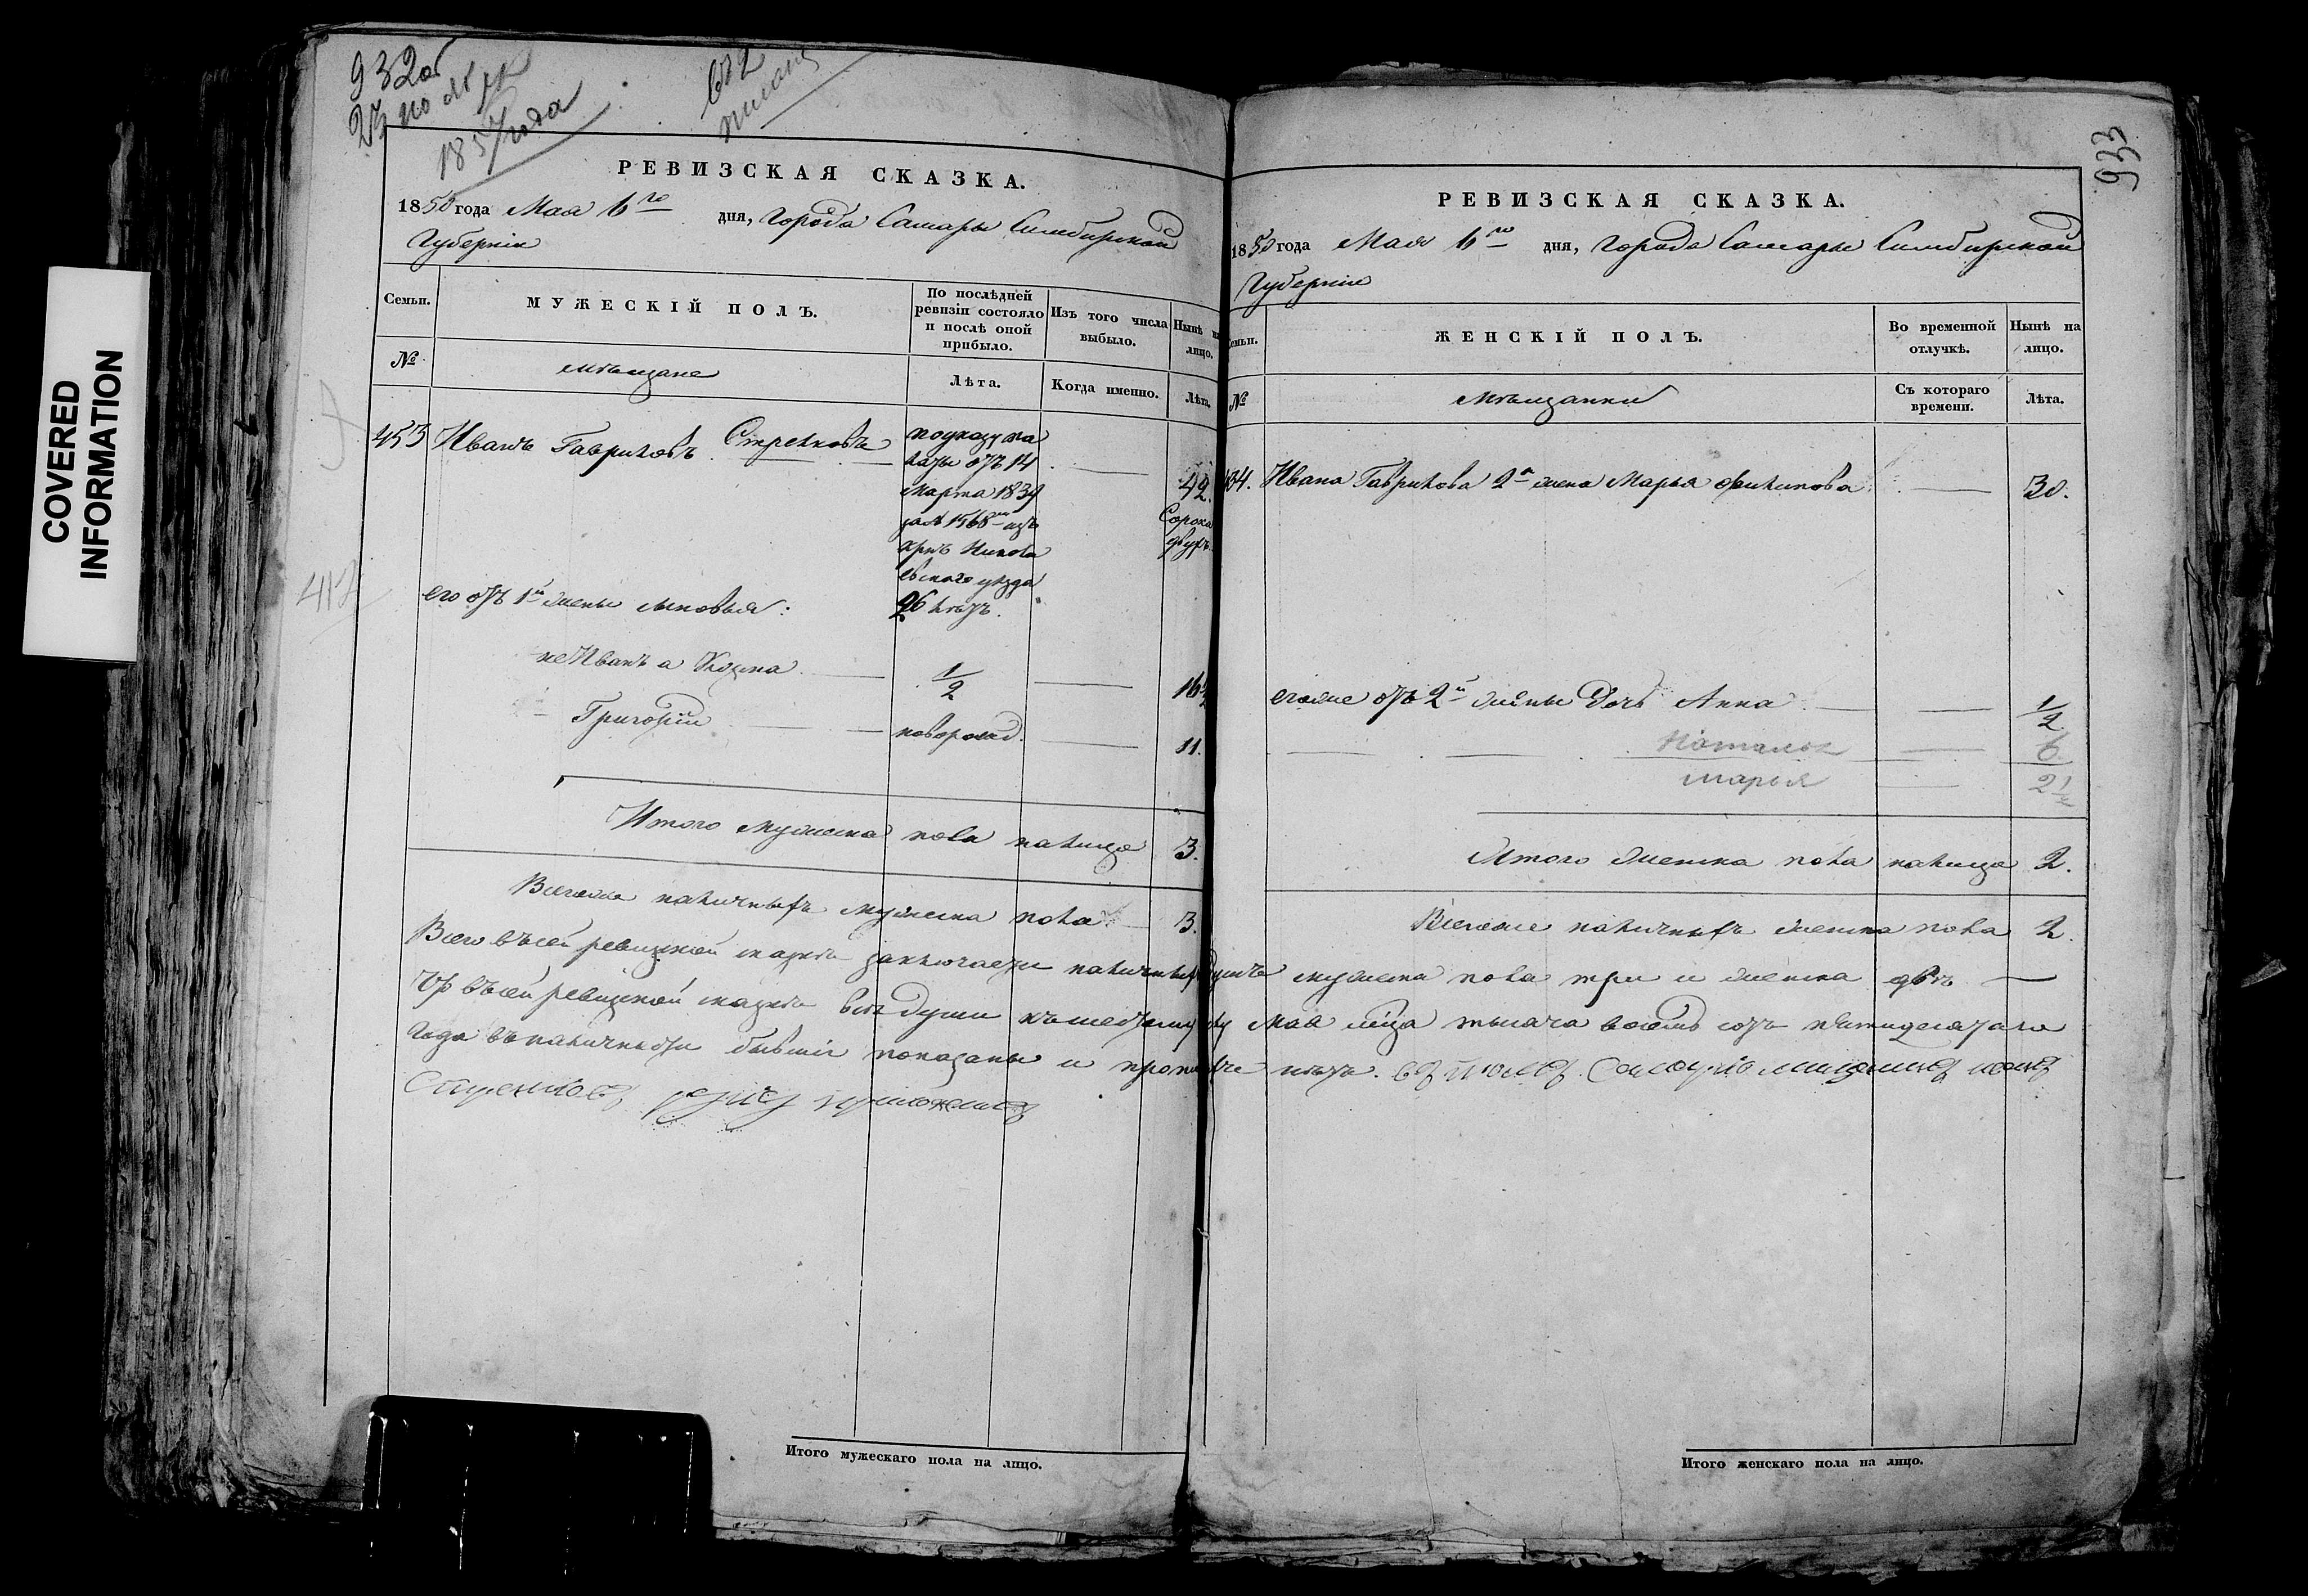 COVERED
INFORMATION
932об
27 по
1857 года
РЕВИЗСКАЯ СКАЗКА.
1850 года Мая 6го дня, Города Самары Симбирской
Губернiи
Семьи.
МУЖЕСКIЙ ПОЛЪ.
По послѣдней ревизiи состояло и послѣ оной прибыло.
Изъ того числа выбыло.
Нынѣ на лицо.
№
мѣщане
Лѣта.
Когда именно.
Лѣта.
453 Иванъ Гавриловъ Стрелковъ
по указу па
латы отъ 14
марта 1834
за № 1568м изъ
Никола
евского уезда
26 лѣтъ.
42.
Сорока
двухъ
его отъ 1й жены сыновья:
не Иванъ а Козма 1/2 16 1/2
Григорiй новорожд. 11.
Итого мужеска пола налицо 3.
Всегоже наличныхъ мужеска пола 3.
933
РЕВИЗСКАЯ СКАЗКА.
1850 года Мая 6го дня, Города Самары Симбирской
Губернiи
Семьи.
ЖЕНСКIЙ ПОЛЪ.
Во временной отлучкѣ.
Нынѣ на лицо.
№
Мѣщанки
Съ котораго времени.
Лѣта.
Ивана Гаврилова 2я жена Марья Филипова 30.
его же отъ 2й жены Дочь Анна 1/2
Наталья 6.
Марья 2 1/2
Итого женска пола налицо 2.
Всегоже наличныхъ женска пола 2.
Всего въ сей ревизской сказке заключается наличныхъ душъ мужеска пола три и женска двѣ
Что въ сей ревизской сказке все души къ шестому Мая мѣца тысяча восемь сотъ пятидесятаго
года въ наличности бывшiе показаны и прописныхъ нѣтъ.
Стрелковъ руку приложилъ
Итого мужескаго пола на лицо.
Итого женскаго пола на лицо.